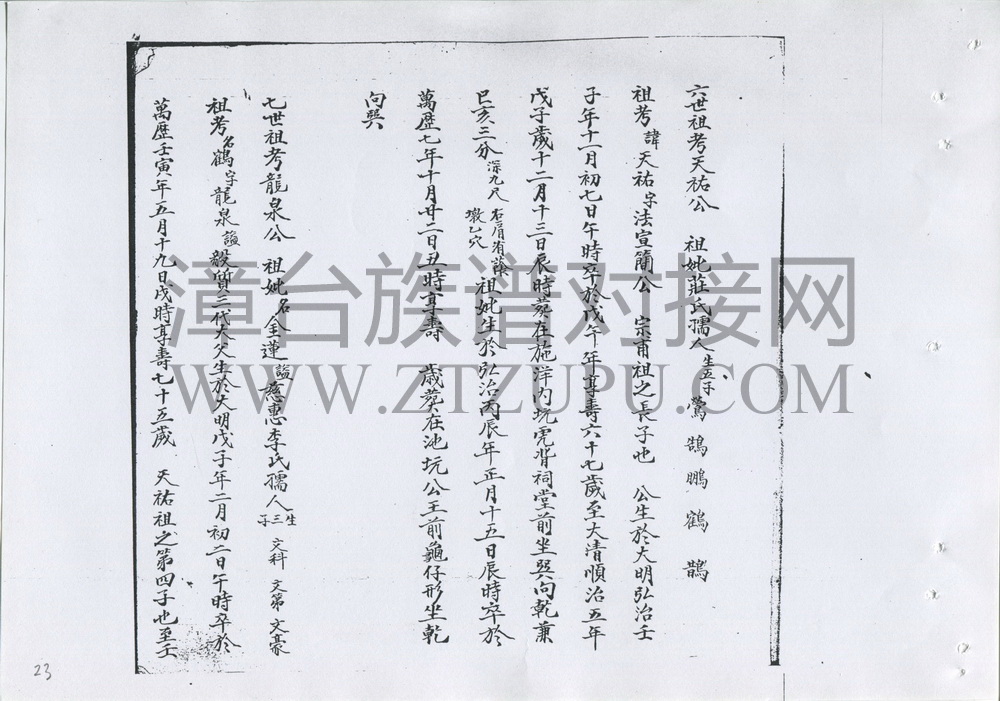 六世祖考天祐公 祖妣莊氏孺人生五子 鶯 鵠 鵬 鶴 鵲
祖考諱天祐字法宣簡公 宗甫祖之長子也 公生於大明弘治壬
子年十一月初七日午時卒於戊午年享壽六十七歲至大清順治五年
戊子歲十二月十三日辰時葬在施洋內坑虎背祠堂前坐巽向乾兼
巳亥三分深九尺 石眉有 墩乙穴 祖妣生於弘治丙辰年正月十五日辰時卒於
萬歷七年十月廿二日丑時享壽 歲葬在池坑公王前龜仔形坐乾
向巽
七世祖考龍泉公 祖妣名金蓮謚慈惠李氏孺人生三子 文科 文第 文豪
祖考名鶴字龍泉謚毅質三代大父生於大明戊子年二月初二日午時卒於
萬歷壬寅年五月十九日戌時享壽七十五歲 天祐祖之第四子也至壬
漳台族谱对接网
WWW.ZTZUPU.COM
23